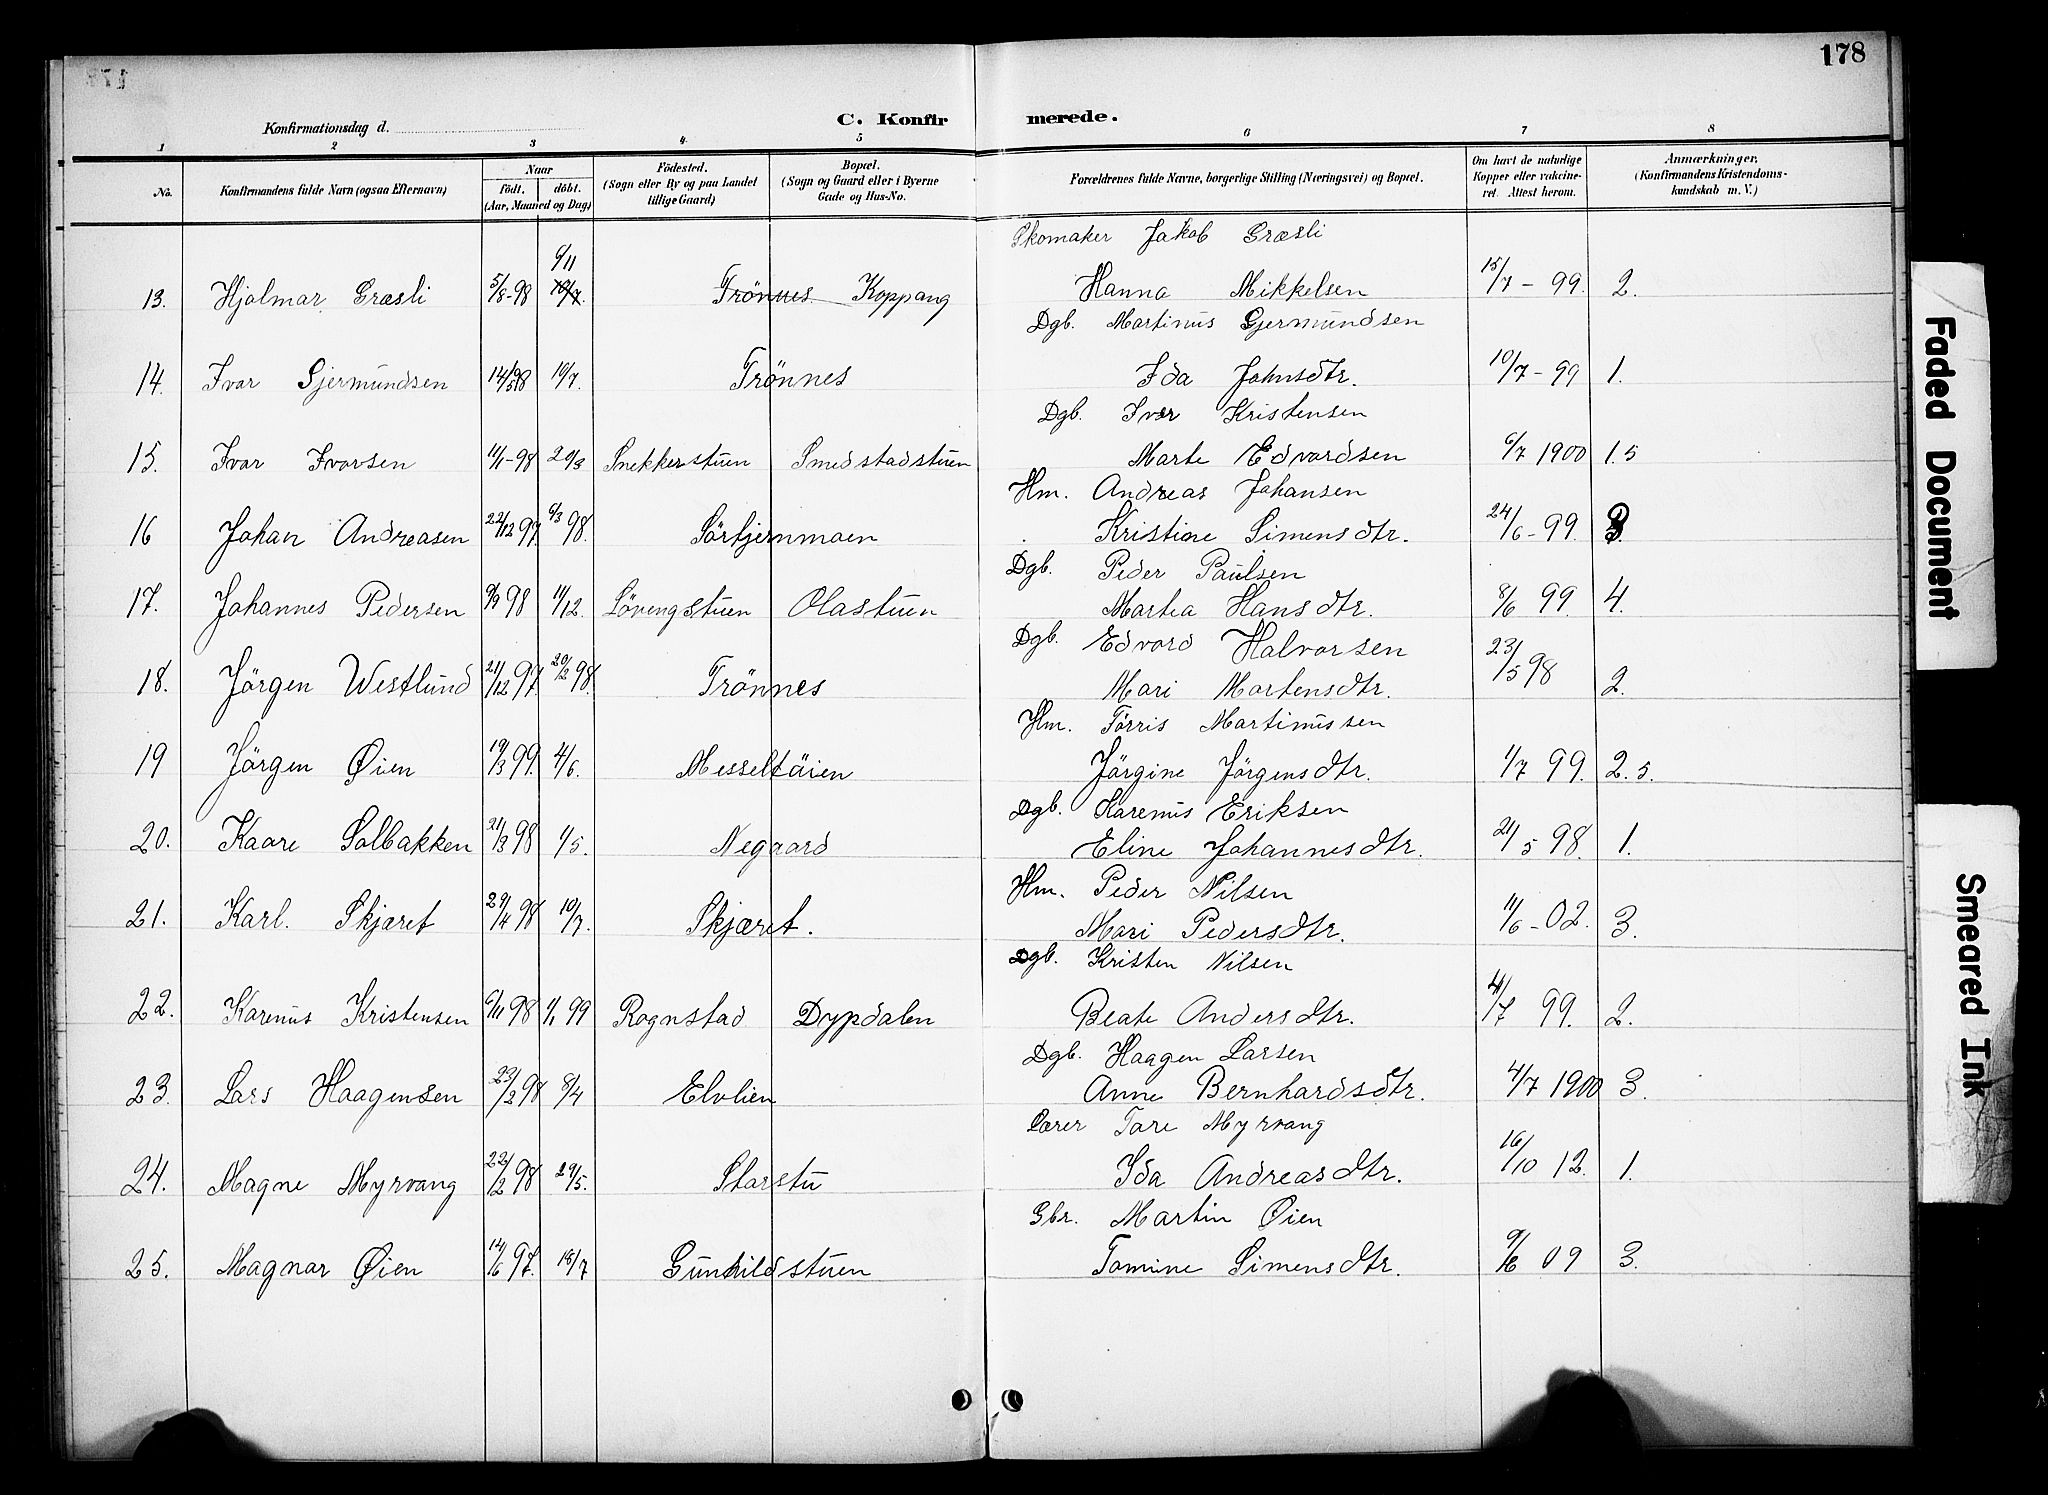 178
Konfirmationsdag d.
C. Konfirmerede.
1 2 3 4 5 6 7 8
No.
Konfirmandens fulde Navn (ogsaa Efternavn)
Naar
födt. döbt.
(Aar, Maaned og Dag)
Födested.
(Sogn eller By og paa Landet
tillige Gaard)
Bopæl.
(Sogn og Gaard eller i Byerne
Gade og Hus-No.
Forældrenes fulde Navne, borgerlige Stilling (Næringsvei) og Bopæl.
Om havt de naturlige
Kopper eller vakcine-
ret. Attest herom.
Anmærkninger.
(Konfirmandens Kristendoms-
kundskab m. V.)
Skomaker Jakob Græsli
6/11
13. Hjalmar Græsli 5/8-98 10/7. Trönnes Koppang Hanna Mikkelsen 15/7-99. 2.
Dgb. Martinus Gjermundsen
14. Ivar Gjermundsen 14/5 98 10/7. Trönnes Ida Johnsdtr. 10/7-99 1.
Dgb. Ivar Kristensen
15. Ivar Ivarsen 11/1-98 20/3 Snekkerstuen Smedstadstuen Marte Edvardsen 6/7 1900 1.5
Hm. Andreas Johansen
16 Johan Andreasen 22/12 97. 6/3 98. Sörtjernmoen Kristine Simensdtr. 24/6-99.
Dgb. Peder Paulsen
17. Johannes Pedersen 9/9 98 11/12. Lövengstuen Olastuen Martea Hansdtr. 8/6 99. 4.
Dgb. Edvard Halvorsen
18. Jörgen Westlund 21/12 97. 20/2 98. Trönnes Mari Martensdtr. 23/5 98 2.
Hm. Törris Martinussen
19 Jörgen Øien 19/3 99. 4/6. Messeltöien Jörgine Jörgensdtr. 1/7 99. 2.5.
Dgb. Karenus Eriksen
20. Kaare Solbakken 21/3 98 1/5. Negaard Eline Johannesdtr. 21/5 98. 1.
Hm. Peder Nilsen
21. Karl. Skjæret 29/4 98 10/7. Skjæret. Mari Pedersdtr. 11/6-02. 3.
Dgb. Kristen Nilsen
22. Karenus Kristensen 6/11 98 1/1 99 Rognstad Dypdalen Beate Andersdtr. 4/7 99. 2.
Dgb. Haagen Larsen
23. Lars Haagensen 23/2 98 8/4 Elvlien Anne Bernhardsdtr. 4/7 1900 3.
Lærer Tore Myrvang
24. Magne Myrvang 22/2 98 29/5. Storstu Ida Andreasdtr. 16/10 12. 1.
Gbr. Martin Øien
25. Magnar Øien 14/6 97. 18/7 Gunhildstuen Tomine Simensdtr. 9/6 09 3.
Faded Document
Smeared Ink